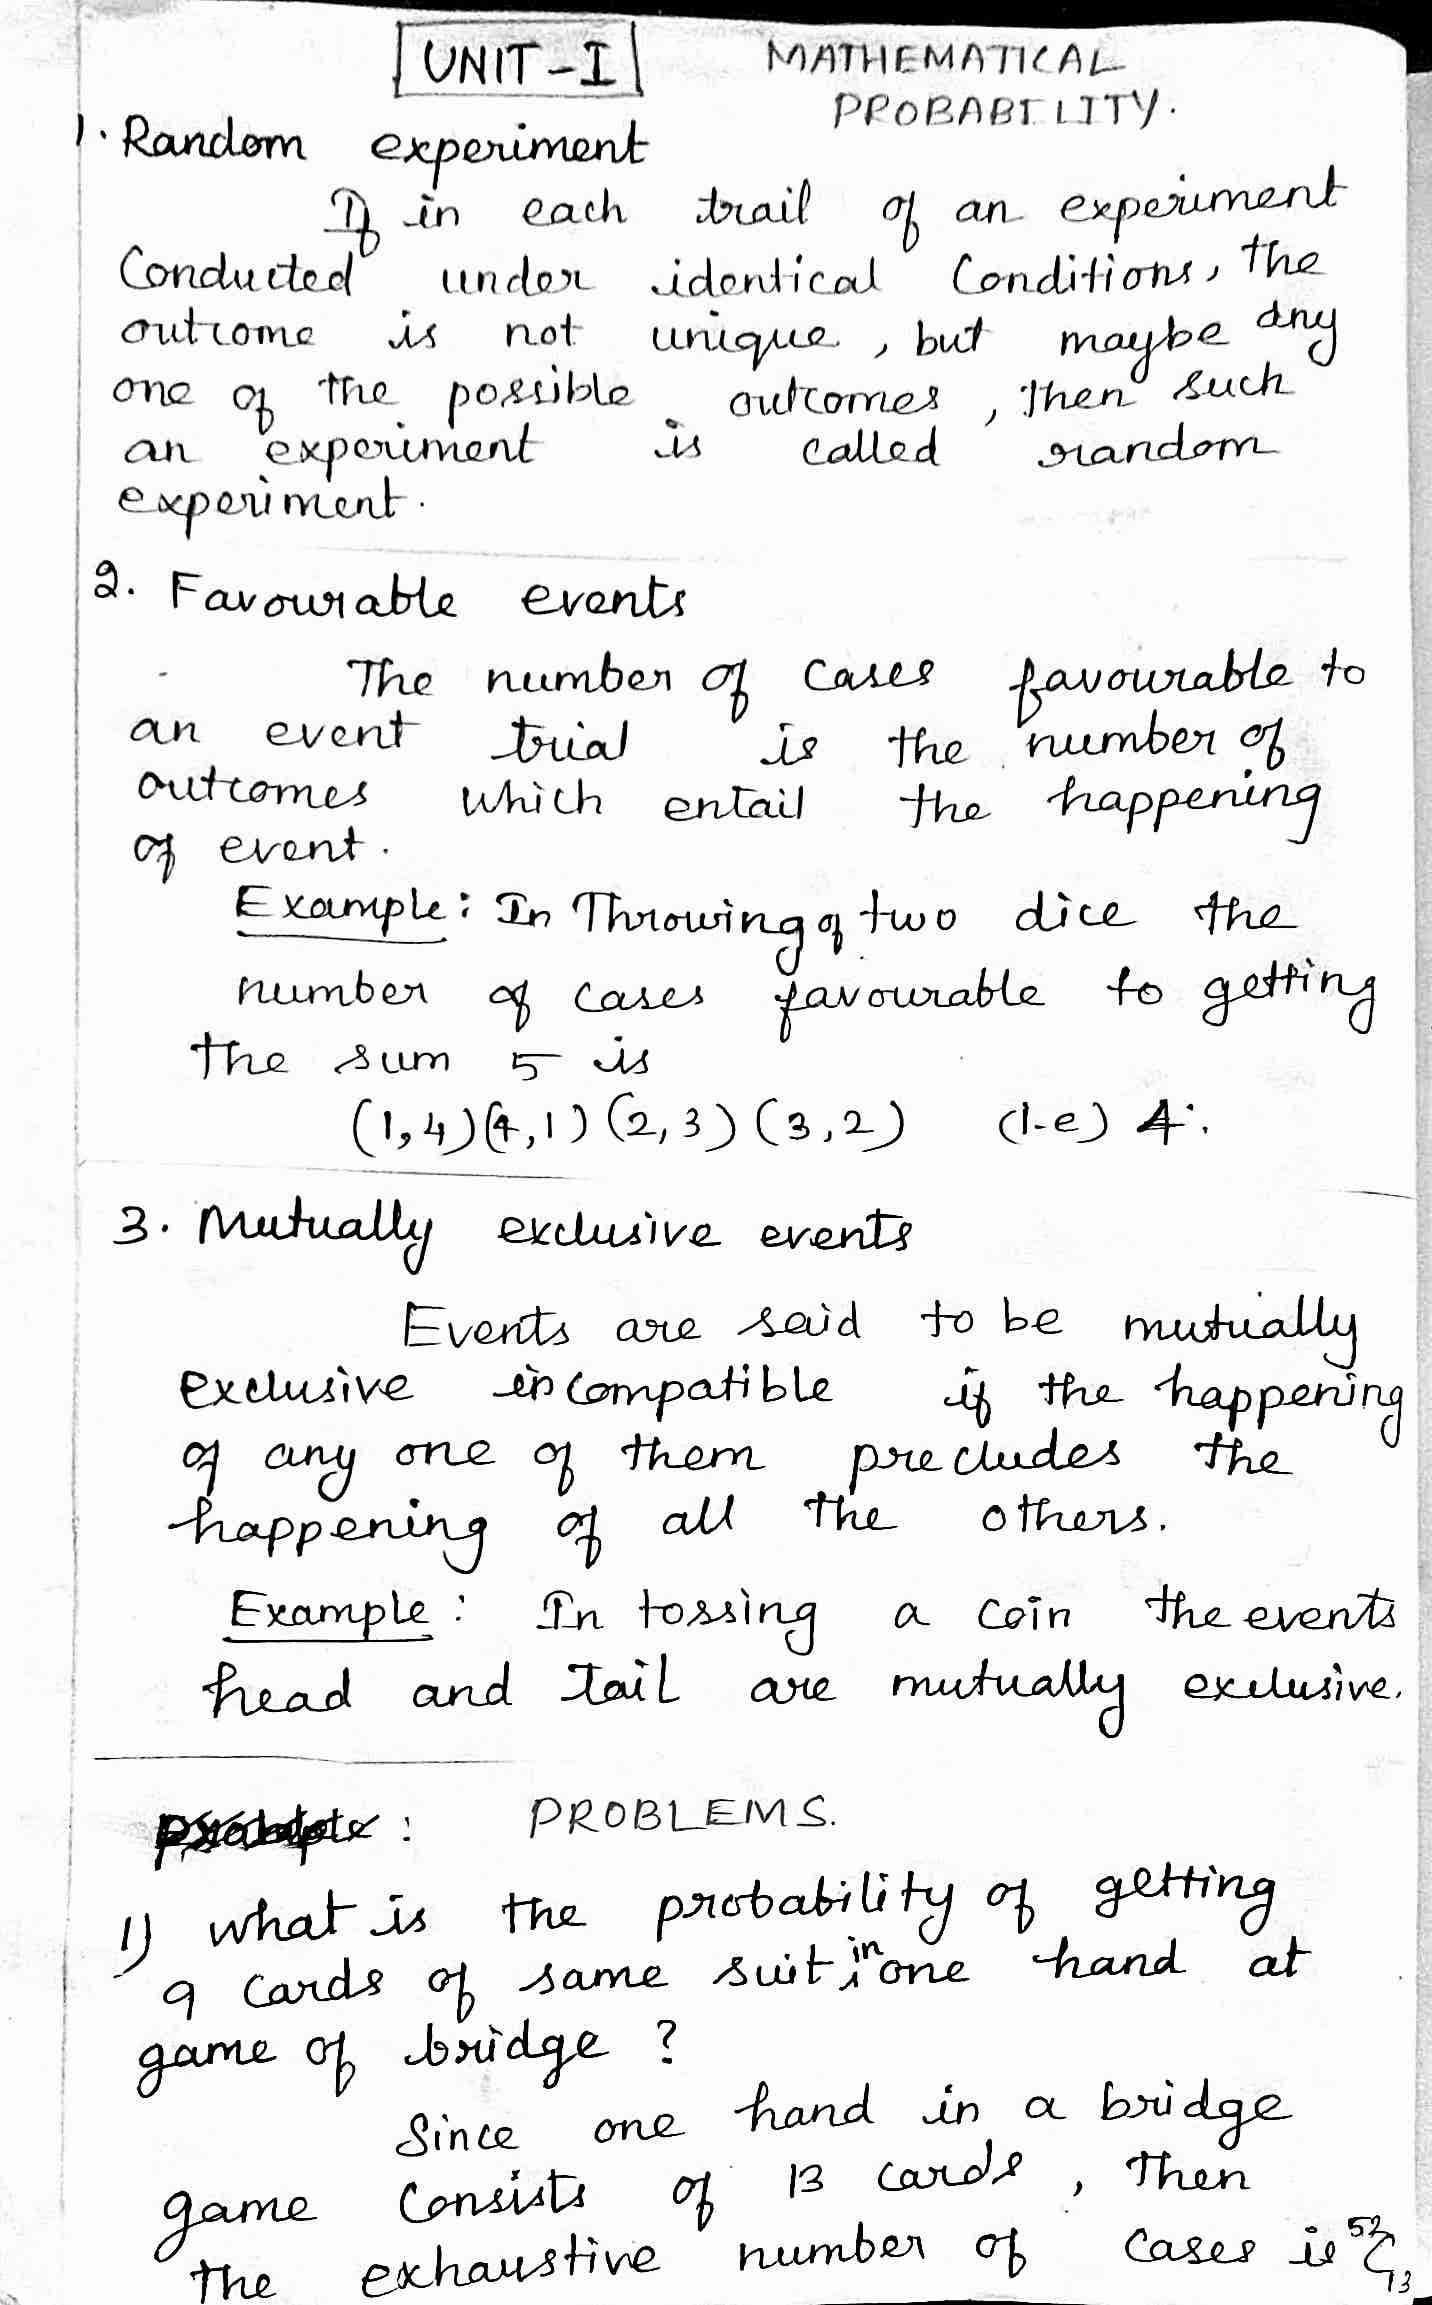 UNIT-I
MATHEMATICAL
PROBABILITY.
1. Random experiment
If in each trail of an experiment
Conducted under identical Conditions, the
outcome is not unique, but maybe any
one of the possible outcomes, then such
an experiment is called random
experiment.
2. Favourable events
The number of cases favourable to
an event trial is the number of
outcomes which entail the happening
of event.
Example: In Throwing of two dice the
number of cases favourable to getting
the sum 5 is
(1,4)(4,1)(2,3)(3,2) (i-e) 4.
3. Mutually exclusive events
Events are said to be mutually
exclusive incompatible if the happening
of any one of them precludes the
happening of all the others.
Example: In tossing a coin the events
head and Tail are mutually exclusive.
: PROBLEMS.
1) what is the probability of getting
9 cards of same suit in one hand at
game of bridge?
Since one hand in a bridge
game consists of 13 cards, Then
the exhaustive number of cases is ⁵²C₁₃